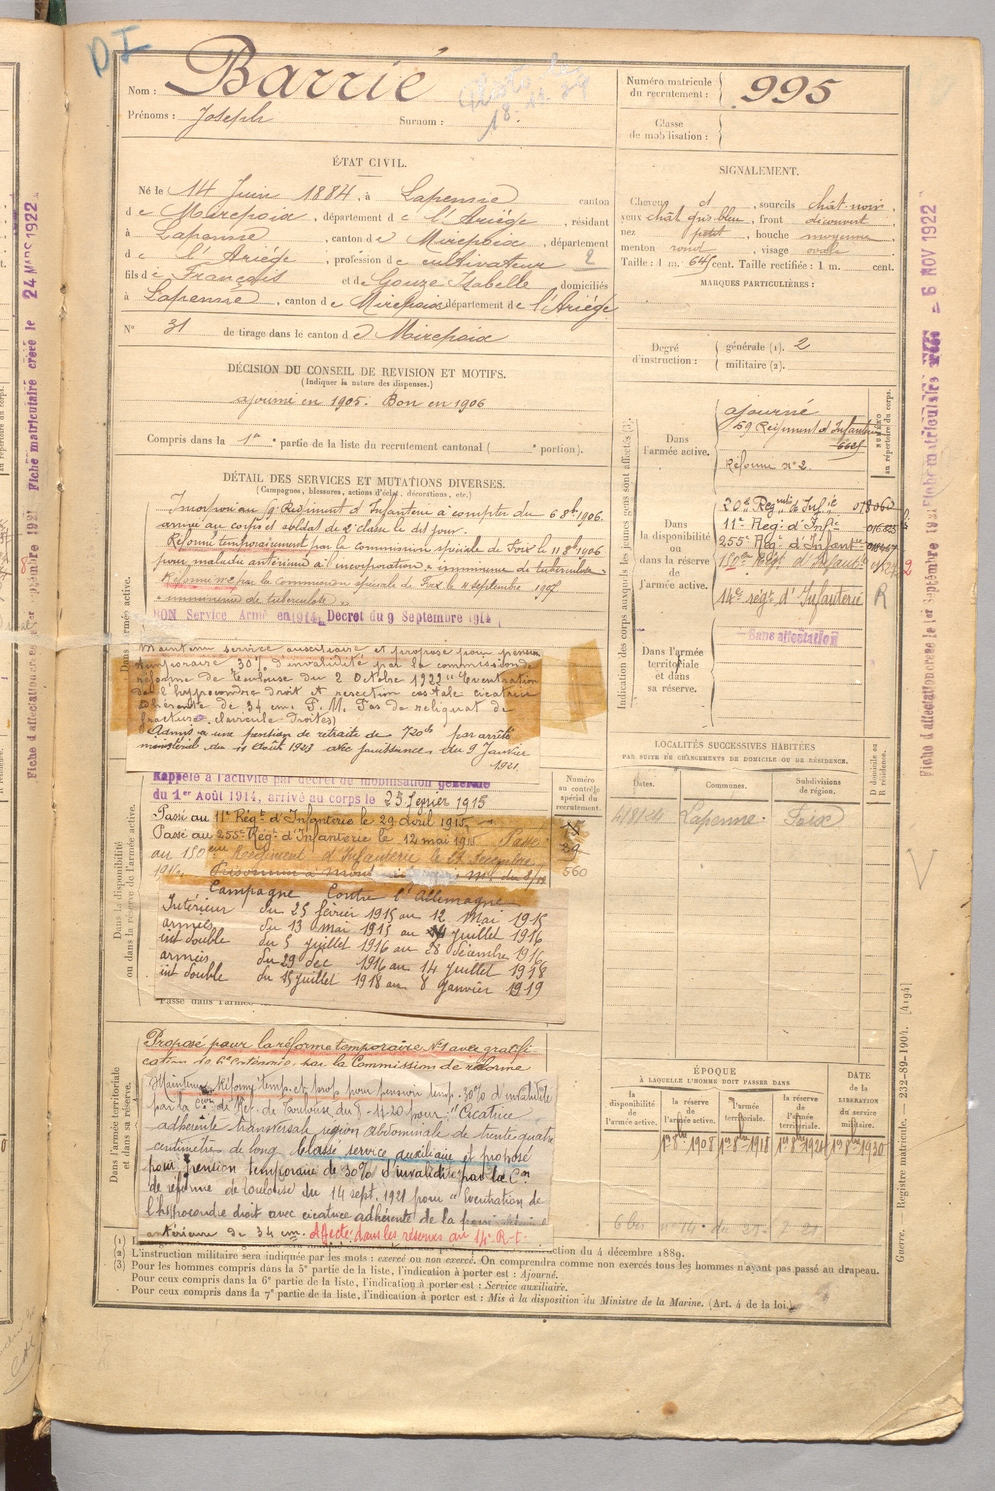 DI
Nom : Barrié
Prénoms : Joseph Surnom :
18. 11. 
Numéro matricule du recrutement : 995
Classe de mobilisation :
ÉTAT CIVIL.
Né le 14 Juin 1884, à Lapenne canton
de Mirepoix, département de l'Ariége, résidant
à Lapenne, canton de Mirepoix, département
de l'Ariége, profession de cultivateur 2
fils de François et de Gouze Isabelle domiciliés
à Lapenne, canton de Mirepoix département de l'Ariége
N° 31 de tirage dans le canton de Mirepoix
SIGNALEMENT.
Cheveux d, sourcils chât-noir,
yeux chât gris bleu, front découvert,
nez petit, bouche moyenne,
menton rond, visage ovale
Taille : 1 m. 64 cent. Taille rectifiée : 1 m. cent.
MARQUES PARTICULIÈRES :
Degré d'instruction : générale (1). 2
militaire (2).
DÉCISION DU CONSEIL DE REVISION ET MOTIFS.
(Indiquer la nature des dispenses.)
ajourné en 1905. Bon en 1906
Compris dans la 1re partie de la liste du recrutement cantonal ( e portion).
DÉTAIL DES SERVICES ET MUTATIONS DIVERSES.
(Campagnes, blessures, actions d'éclat, décorations, etc.)
Incorporé au 59e Régiment d'Infanterie à compter du 6 8bre 1906.
arrivé au corps et soldat de 2e classe le dit jour.
Réformé temporairement par la commission spéciale de Foix le 11 8bre 1906
pour maladie antérieure à l'incorporation « imminence de tuberculose »
Réformé n°2 par la commission spéciale de Foix le septembre 1907
« imminence de tuberculose »
BON Service Armé en 1914, Décret du 9 Septembre 1914
Maintenu service auxiliaire et proposé pour pension
temporaire 30% d'invalidité par la commission de
réforme de Toulouse du 2 Octobre 1922 "Eventration
de l'hypocondre droit et resection costale cicatrice
adhérente de 34 cm. P. M. Pas de reliquat de
fracture clavicule droite)
Admis à une pension de retraite de 720f par arrêté
ministériel du 11 Août 1923 avec jouissance du 9 Janvier
1921
Rappelé à l'activité par décret de mobilisation générale
du 1er Août 1914, arrivé au corps le 25 février 1915
Passé au 11e Régt d'Infanterie le 29 avril 1915
Passé au 255e Régt d'Infanterie le 12 mai 1915 Passé
au 150eme Régiment d'Infanterie le
1916.
Campagne Contre l'Allemagne
Intérieur du 25 février 1915 au 12 Mai 1915
armées du 13 mai 1915 au 4 Juillet 1916
int double du 5 juillet 1916 au 28 décembre 1916
armées du 29 dec 1916 au 14 Juillet 1918
int double du 15 juillet 1918 au 8 Janvier 1919
Passé dans l'armée
Proposé pour la réforme temporaire N°1 avec gratifi-
cation de 6e catégorie par la Commission de réforme
Maintenu Réformé temp. et prop. pour pension temp. 30% d'invalidité
par la Con de Réf. de Toulouse du 5-11-20 pour "Cicatrice
adhérente transversale région abdominale de trente quatre
centimètres de long. Classé service auxiliaire et proposé
pour pension temporaire de 30% d'invalidité par la Con
de réforme de Toulouse du 14 sept. 1921 pour "Eventration de
l'hypocondre droit avec cicatrice adhérente de la
antérieure de 34 cm. Affecté dans les réserves au 14e R.I.
Numéro au contrôle spécial du recrutement.
560
Indication des corps auxquels les jeunes gens sont affectés (3).
Dans l'armée active.
ajourné
59 Régiment d'Infanterie
Réformé n°2.
NUMÉRO au répertoire du corps.
Dans la disponibilité ou dans la réserve de l'armée active.
20e Regiment d'Infie
11e Reg: d'Infie
255e Régt d'Infantie
150e Régt d'Infantie
14e régt d'Infanterie R
Sans affectation
Dans l'armée territoriale et dans sa réserve.
LOCALITÉS SUCCESSIVES HABITÉES
PAR SUITE DE CHANGEMENTS DE DOMICILE OU DE RÉSIDENCE.
Dates. Communes. Subdivisions de région. D domicile ou R résidence.
Lapenne. Foix
ÉPOQUE
À LAQUELLE L'HOMME DOIT PASSER DANS
la disponibilité de l'armée active. la réserve de l'armée active. l'armée territoriale. la réserve de l'armée territoriale. DATE de la LIBÉRATION du service militaire.
1er 8bre 1908 1er 8bre 1918 1er 8bre 1924 1er 8bre 1930
Dans l'armée active.
Dans la disponibilité ou dans la réserve de l'armée active.
Dans l'armée territoriale et dans sa réserve.
ction du 4 décembre 1889.
(2) L'instruction militaire sera indiquée par les mots : exercé ou non exercé. On comprendra comme non exercés tous les hommes n'ayant pas passé au drapeau.
(3) Pour les hommes compris dans la 5e partie de la liste, l'indication à porter est : Ajourné.
Pour ceux compris dans la 6e partie de la liste, l'indication à porter est : Service auxiliaire.
Pour ceux compris dans la 7e partie de la liste, l'indication à porter est : Mis à la disposition du Ministre de la Marine. (Art. 4 de la loi.)
Guerre. — Registre matricule. — 232-89-1904. [4194]
Fiche matriculaire créée le 24 MARS 1922
Fiche d'affectation créée le 1er Septembre 1921
Fiche matriculaire créée le 6 NOV 1922